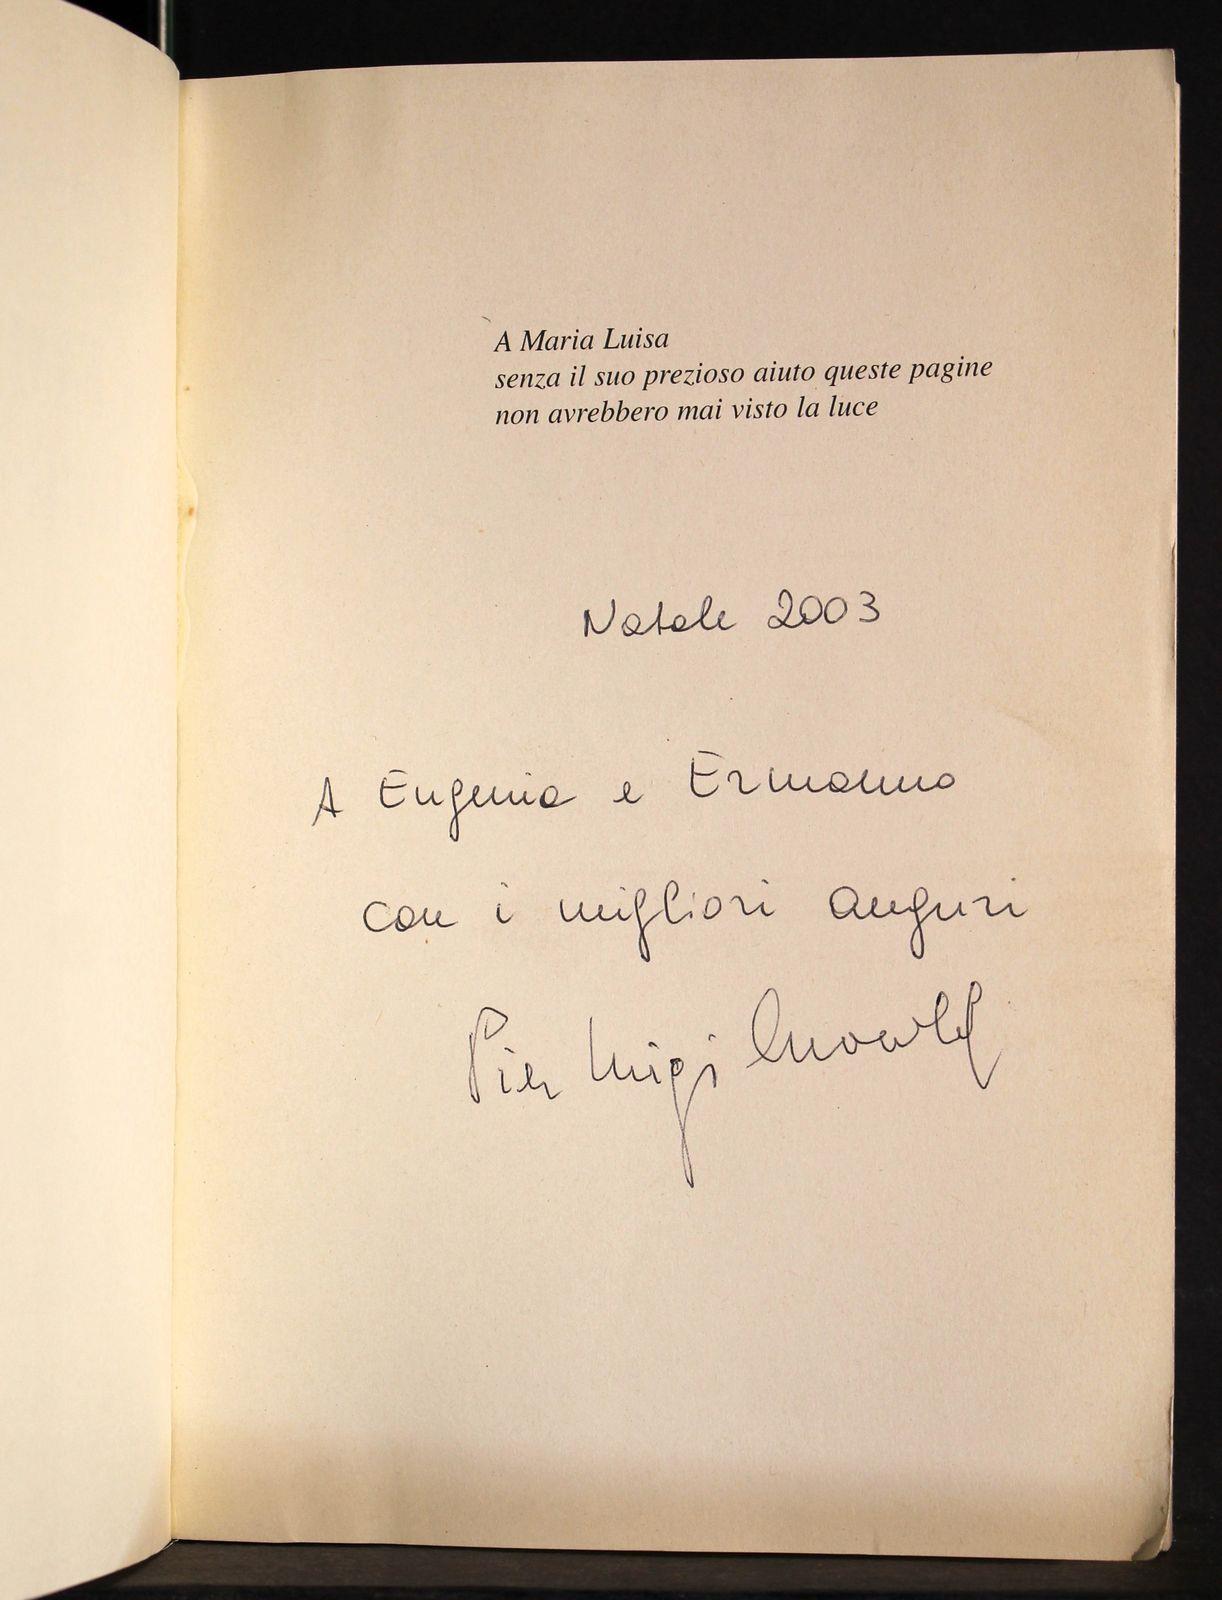 A Maria Luisa
senza il suo prezioso aiuto queste pagine
non avrebbero mai visto la luce
Natale 2003
A Eugenia e Ermanno
con i migliori auguri
Pier Luigi